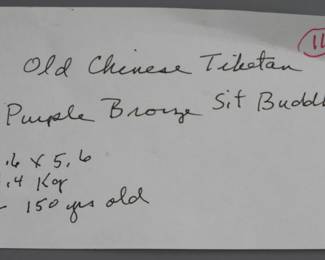 11
Old Chinese Tibetan
Purple Bronze Sit Budd
.6 x 5.6
.4 Kg
- 150 yrs old